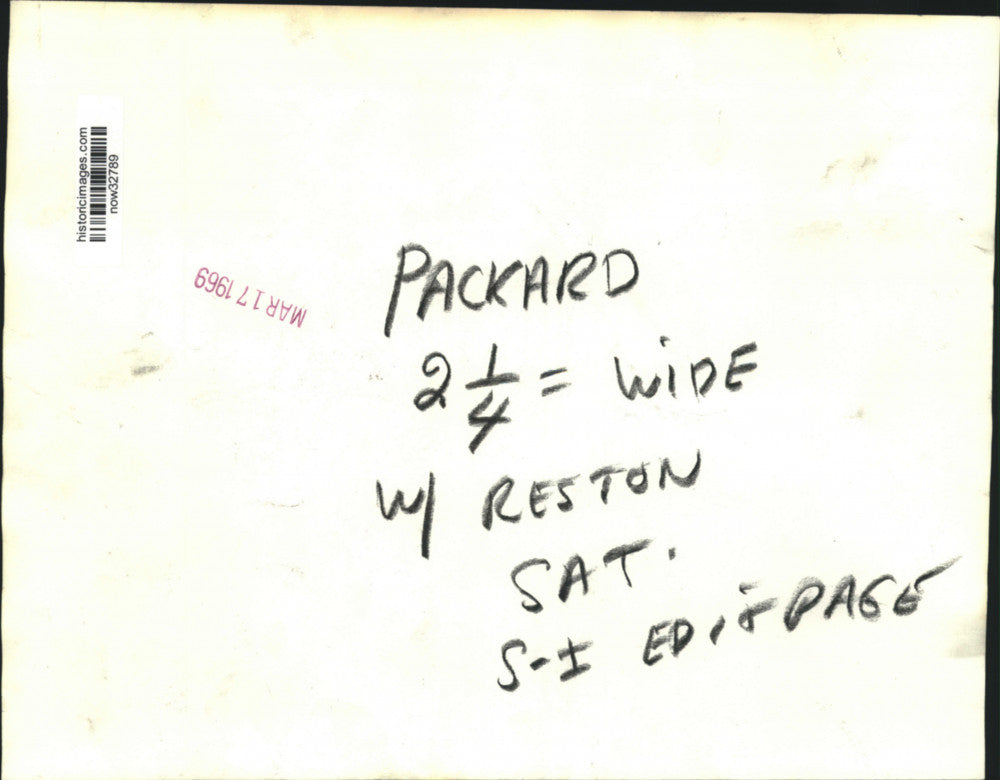 historicimages.com
now32789
MAR 17 1969
PACKARD
2 1/4 = WiDE
W/ RESTON
SAT.
S-I EDiTPAGE